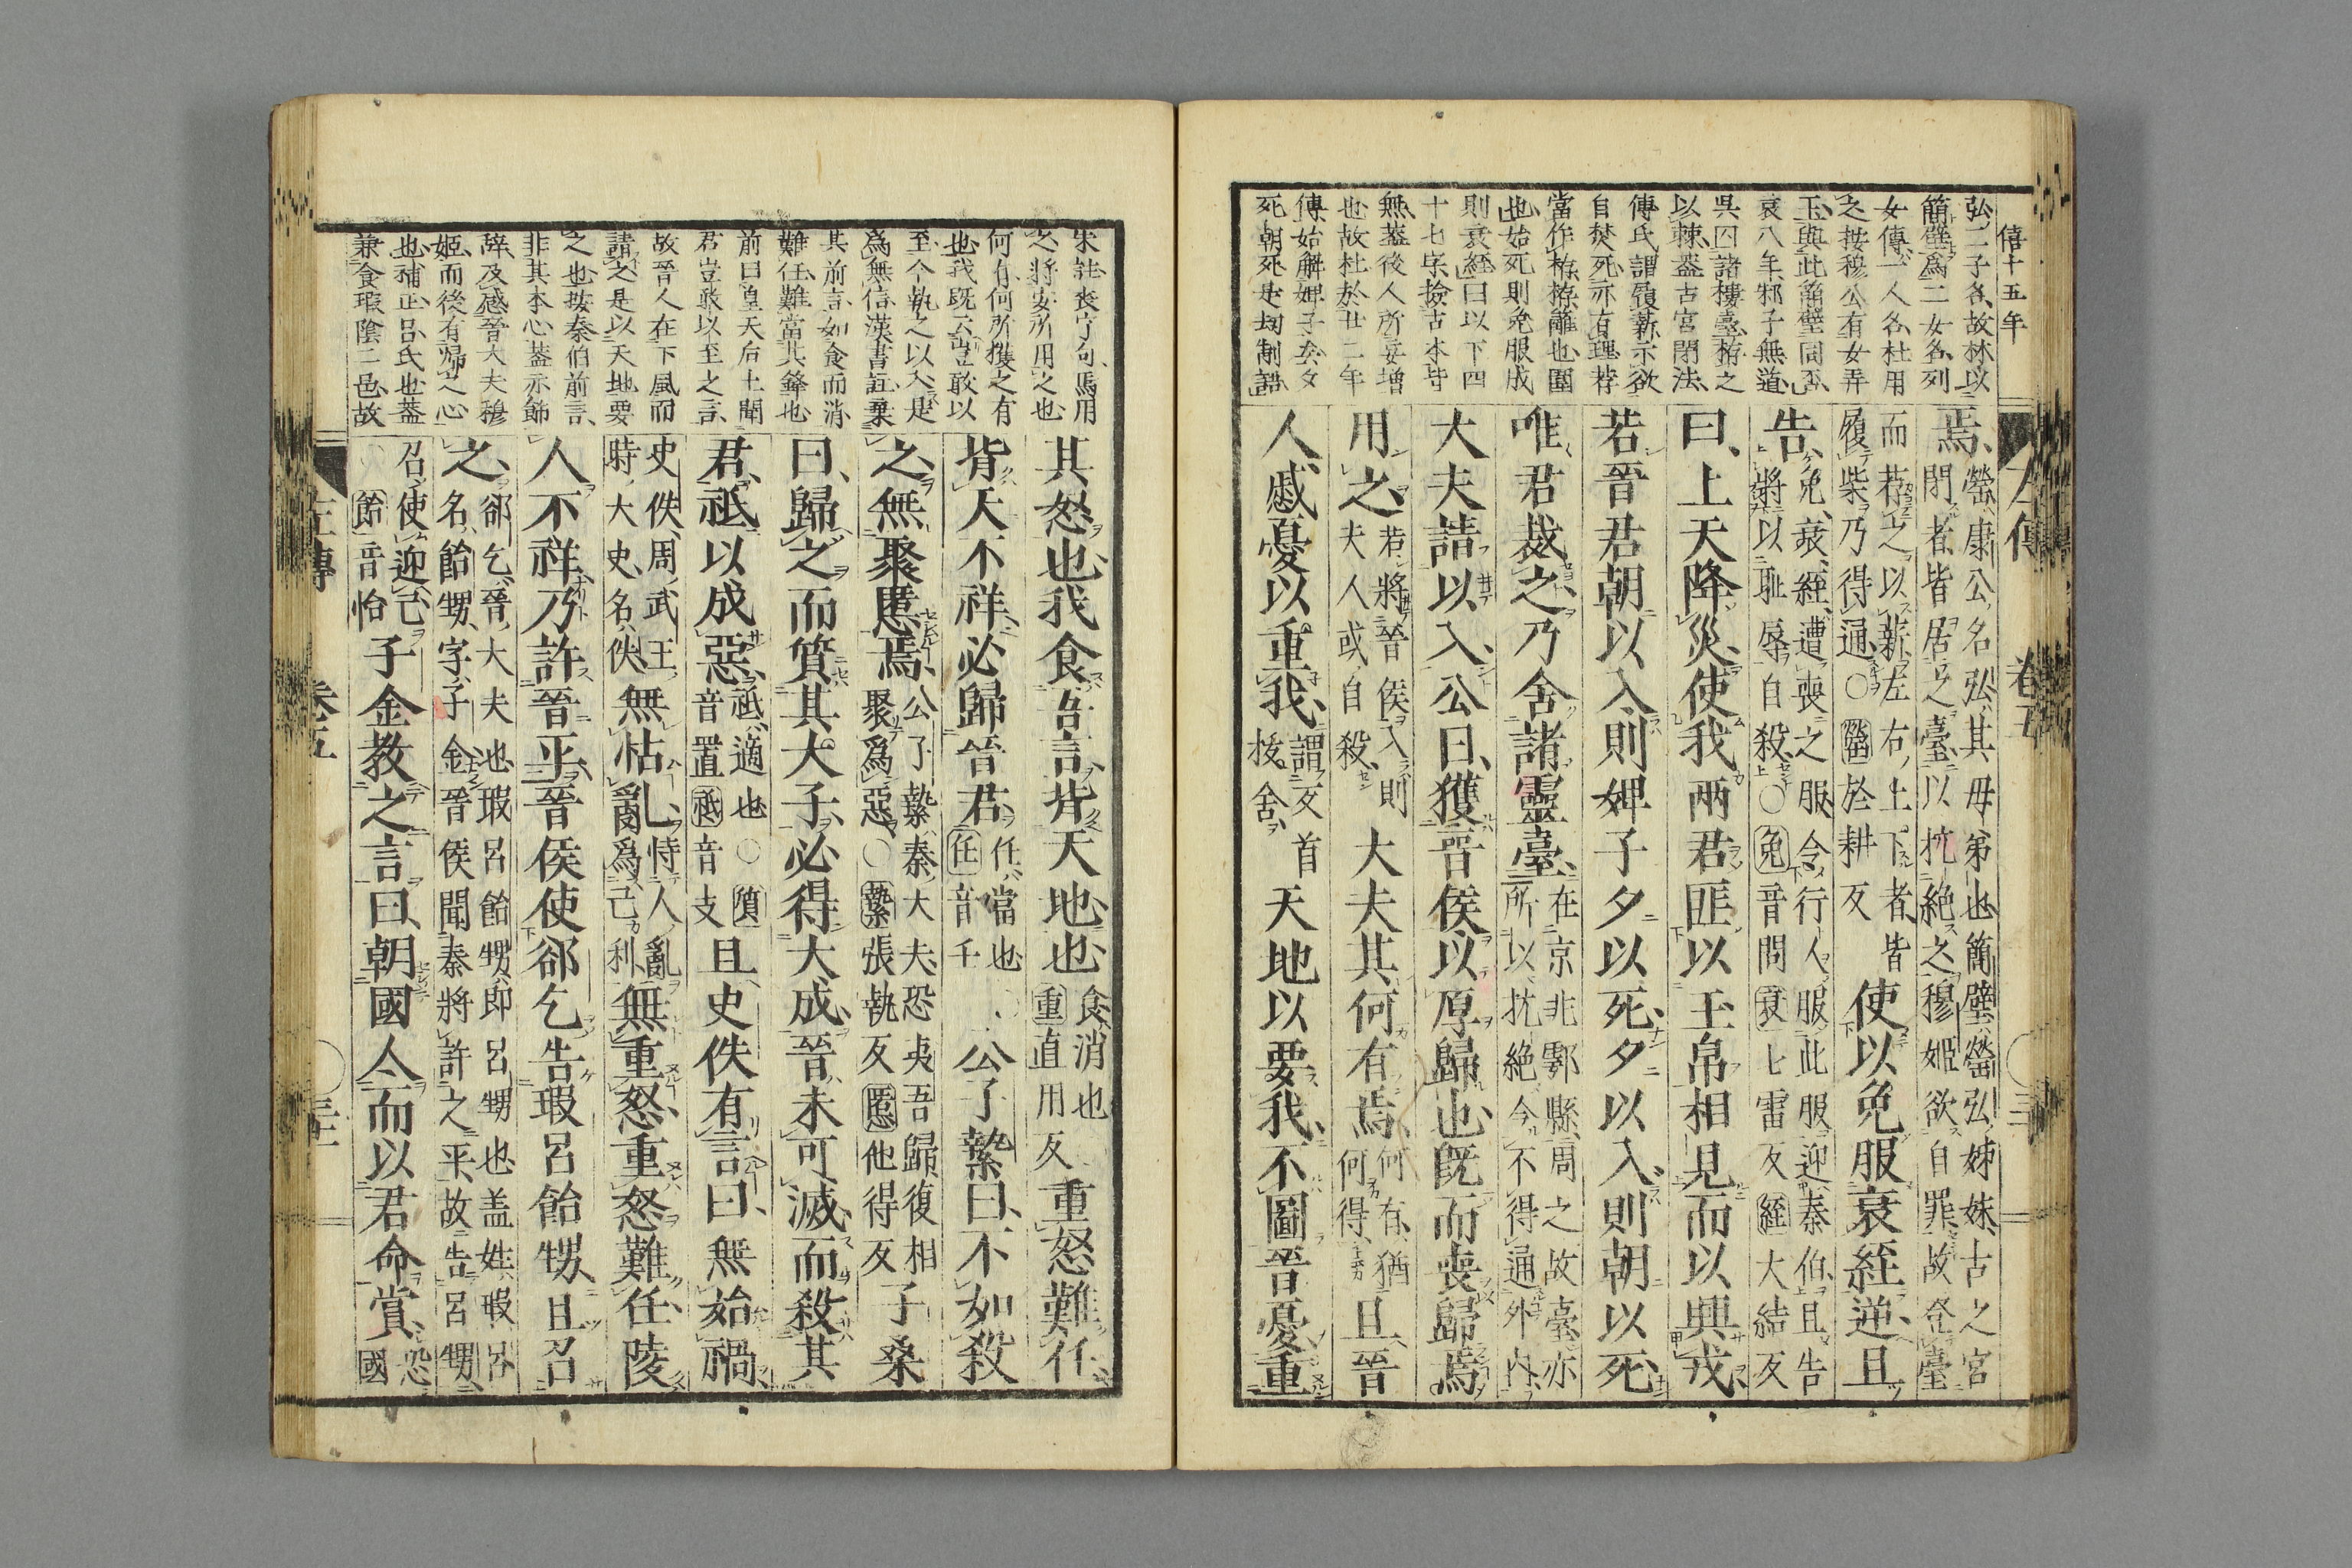 僖十五年
弘二子各故林以
簡璧爲二女名列
女傳一人名杜用
之按穆公有女弄
玉與此簡璧同否
哀八年邾子無道
吳囚諸樓臺栫之
以棘蓋古宮閉法
傳氏謂履薪示欲
自焚死亦有理栫
當作栫栫籬也圍
也始死則免服成
則衰經曰以下四
十七字撿古本皆
無蓋後人所妄增
也故杜於廿二年
傳始解婢子矣夕
死朝死是均制語
左傳 卷五
焉罃康公名弘其母弟也簡璧罃弘姊妹古之宮
閉者皆居之臺以抗絕之穆姬欲自罪故登臺
而荐之以薪左右上下者皆
履柴乃得通○罃於耕反使以免服衰絰逆且
告免衰絰遭喪之服令行人服此服迎秦伯且告
將以耻辱自殺○免音問衰七雷反絰大結反
曰上天降災使我兩君匪以玉帛相見而以興戎
若晉君朝以入則婢子夕以死夕以入則朝以死
唯君裁之乃舍諸靈臺在京兆鄠縣周之故臺亦
所以抗絕令不得通外內
大夫請以入公曰獲晉侯以厚歸也既而喪歸焉
用之若將晉侯入則
夫人或自殺大夫其何有焉何有猶
何得且晉
人慼憂以重我謂反首
拔舍天地以要我不圖晉憂重
宋註喪亨句馬用
之將安所用之也
何有何所獲之有
也我既云豈敢以
至今執之以入是
爲無信漢書註棄
其前言如食而消
難任難當其鋒也
前曰皇天后土聞
君豈敢以至之言
故晉人在下風而
請之是以天地要
之也按秦伯前言
非其本心蓋亦飾
辭及感晉大夫穆
姬而後有歸之心
也補正呂氏也蓋
兼食瑕陰二邑故
其怒也我食吾言背天地也食消也
重直用反重怒難任
背天不祥必歸晉君任當也
任音壬公子縶曰不如殺
之無聚慝焉公子縶秦大夫恐夷吾歸復相
聚爲惡○縶張執反慝他得反子桑
曰歸之而質其大子必得大成晉未可滅而殺其
君祇以成惡祇適也○質
音置祇音支且史佚有言曰無始禍
史佚周武王
時大史名佚無怙亂恃人亂
爲己利無重怒重怒難任陵
人不祥乃許晉平晉侯使郤乞告瑕呂飴甥且召
之郤乞晉大夫也瑕呂飴甥即呂甥也盖姓瑕呂
名飴甥字子金晉侯聞秦將許之平故告呂甥
召使迎己
飴音怡子金教之言曰朝國人而以君命賞恐
國
左傳 卷五